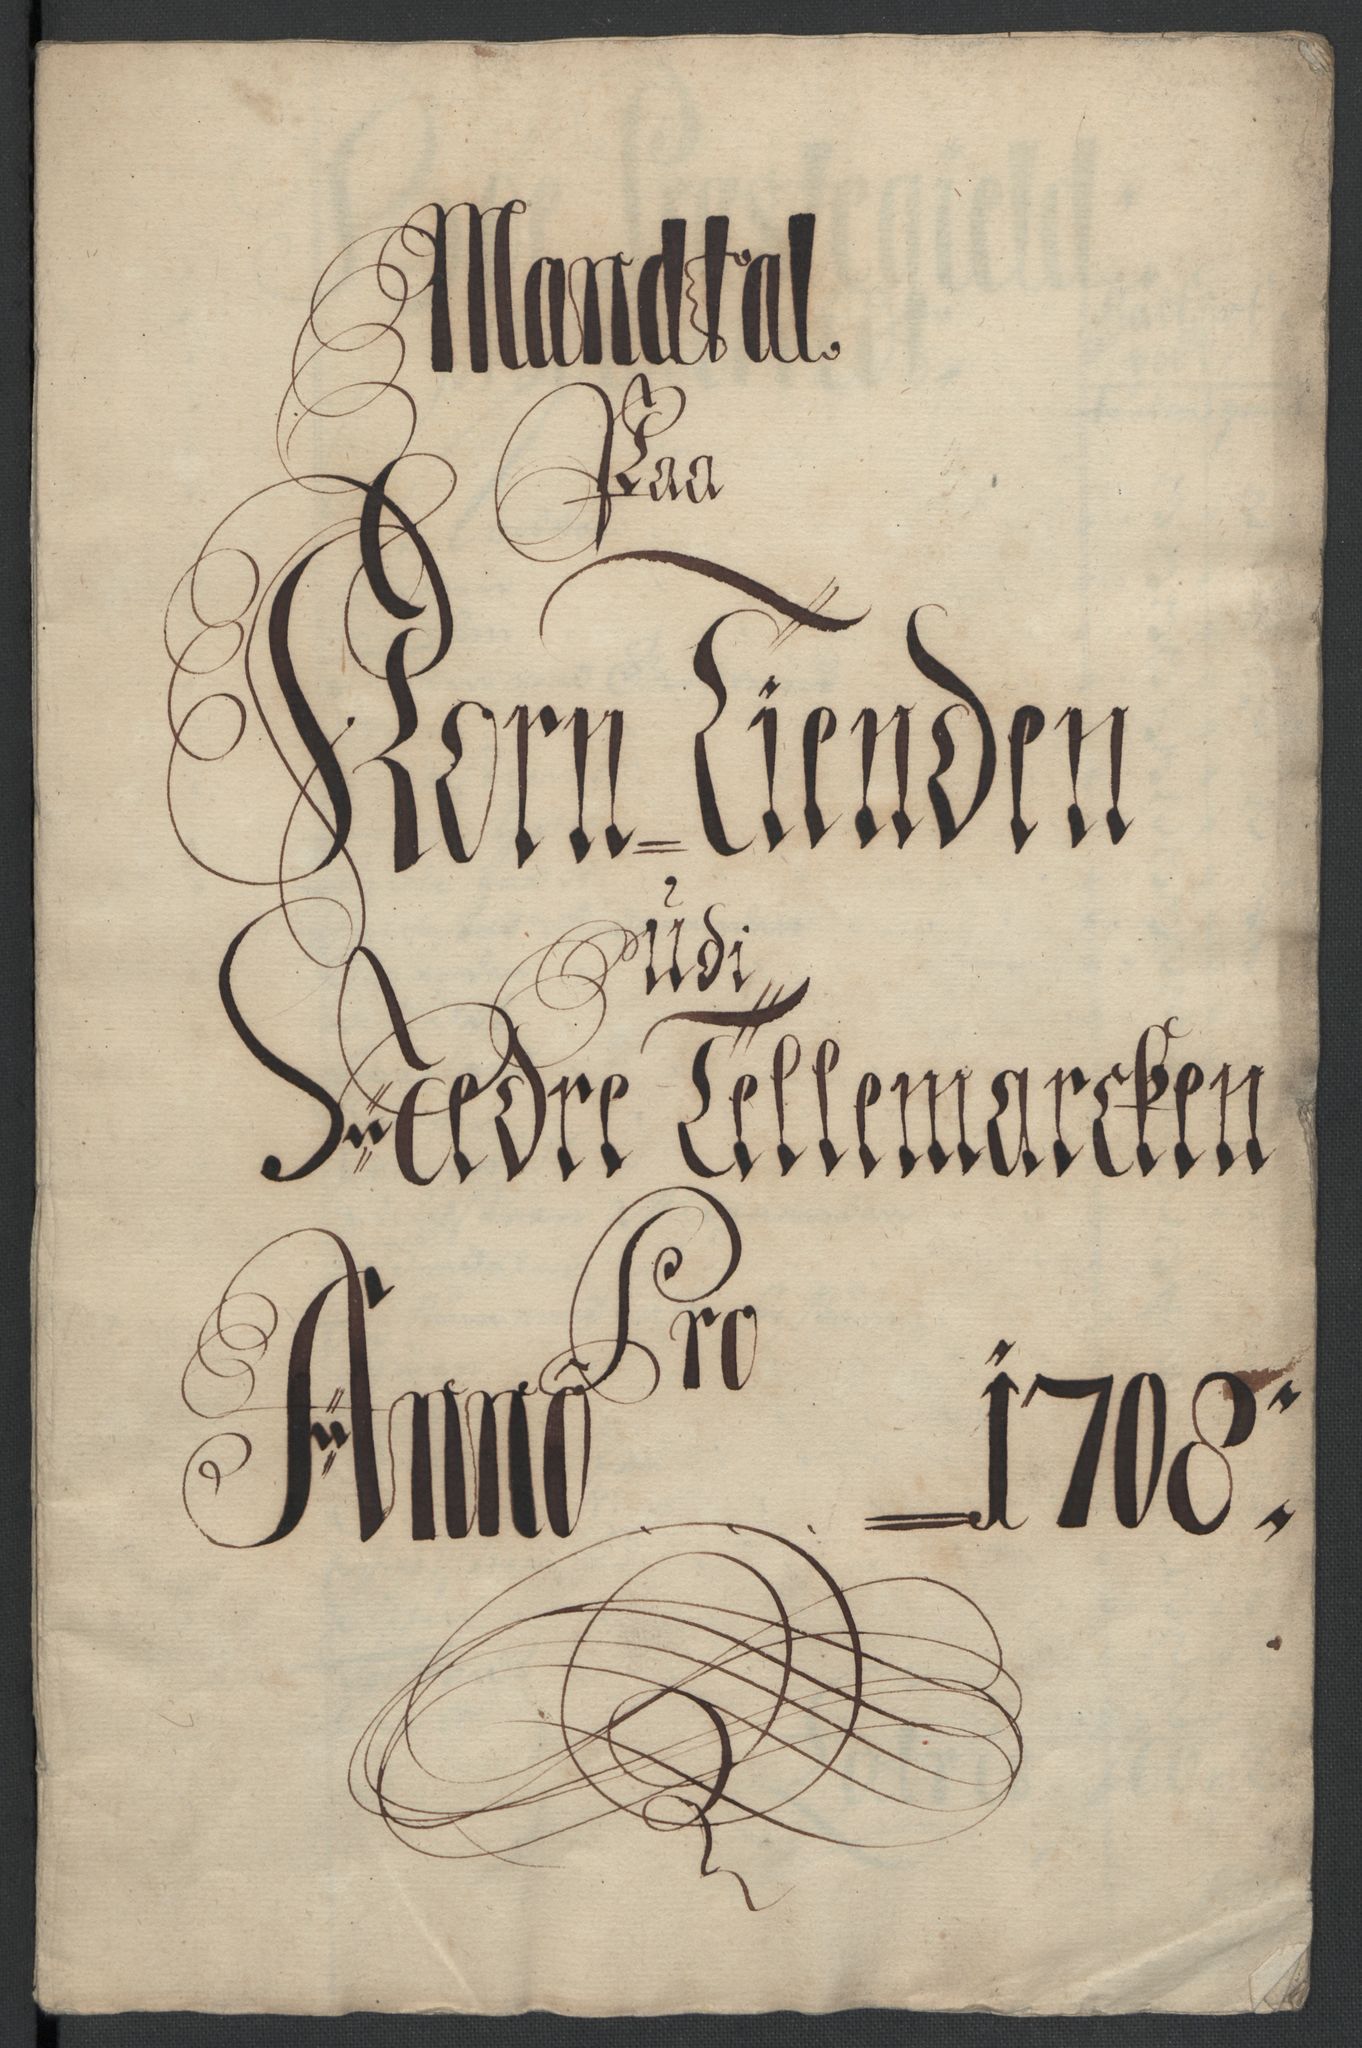 Mandtal.
Paa
Korn=Tienden
udi
Nedre Tellemarcken
Pro
Anno 1708: